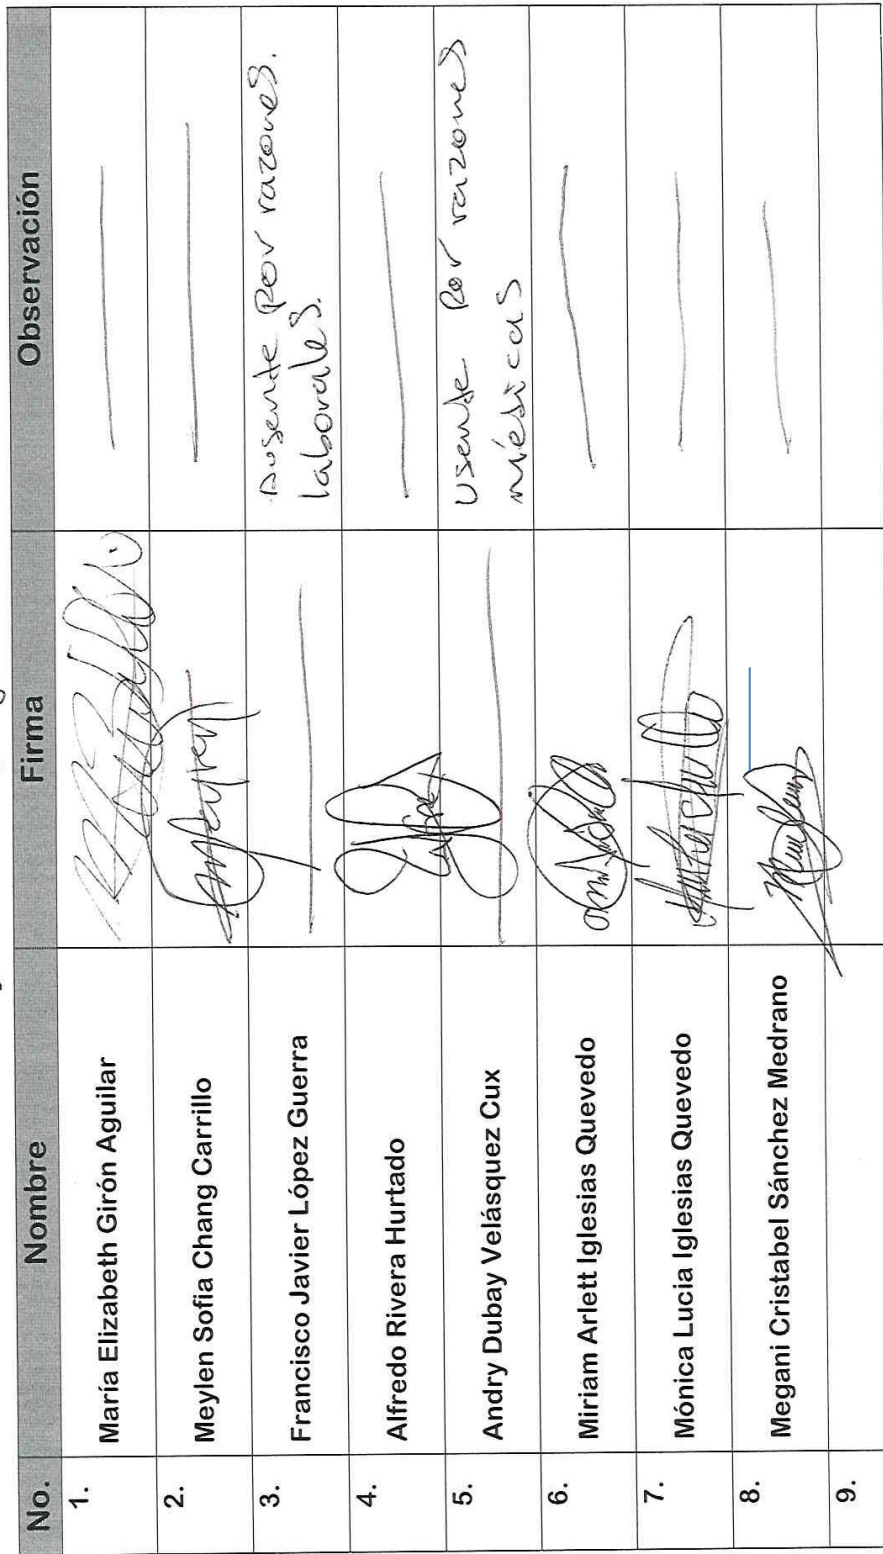 No. Nombre Firma Observación
1. María Elizabeth Girón Aguilar
2. Meylen Sofia Chang Carrillo
3. Francisco Javier López Guerra Ausente por razones.
laborales.
4. Alfredo Rivera Hurtado
5. Andry Dubay Velásquez Cux Usente por razones
médicas
6. Miriam Arlett Iglesias Quevedo
7. Mónica Lucia Iglesias Quevedo
8. Megani Cristabel Sánchez Medrano
9.